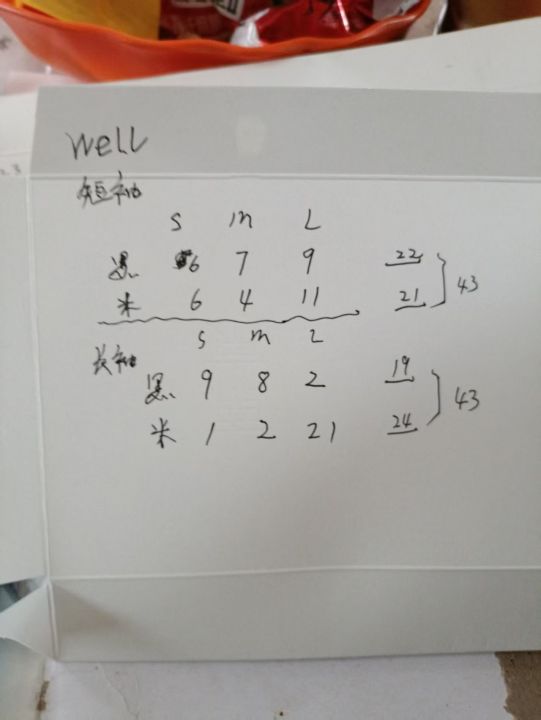 well
短袖
S m L
黑 6 7 9 22
米 6 4 11 21
43
长袖
S m L
黑 9 8 2 19
米 1 2 21 24
43